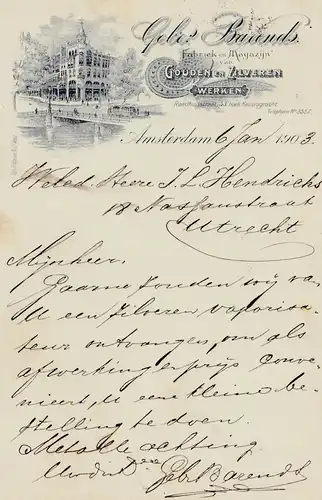 Gebrs Barends.
Fabriek en Magazijn
van
GOUDEN EN ZILVEREN
WERKEN
Amsterdam 6 Jan 1903.
Weled. Heere J. L. Hendrichs
18 Nassaustraat
Utrecht
Mijnheer.
Gaarne zouden wij van
U een zilveren vaporisa-
teur ontvangen, om als
afwerking en prijs conve-
nieert, U een kleine be-
stelling te doen.
Met alle achting
Gebr Barends